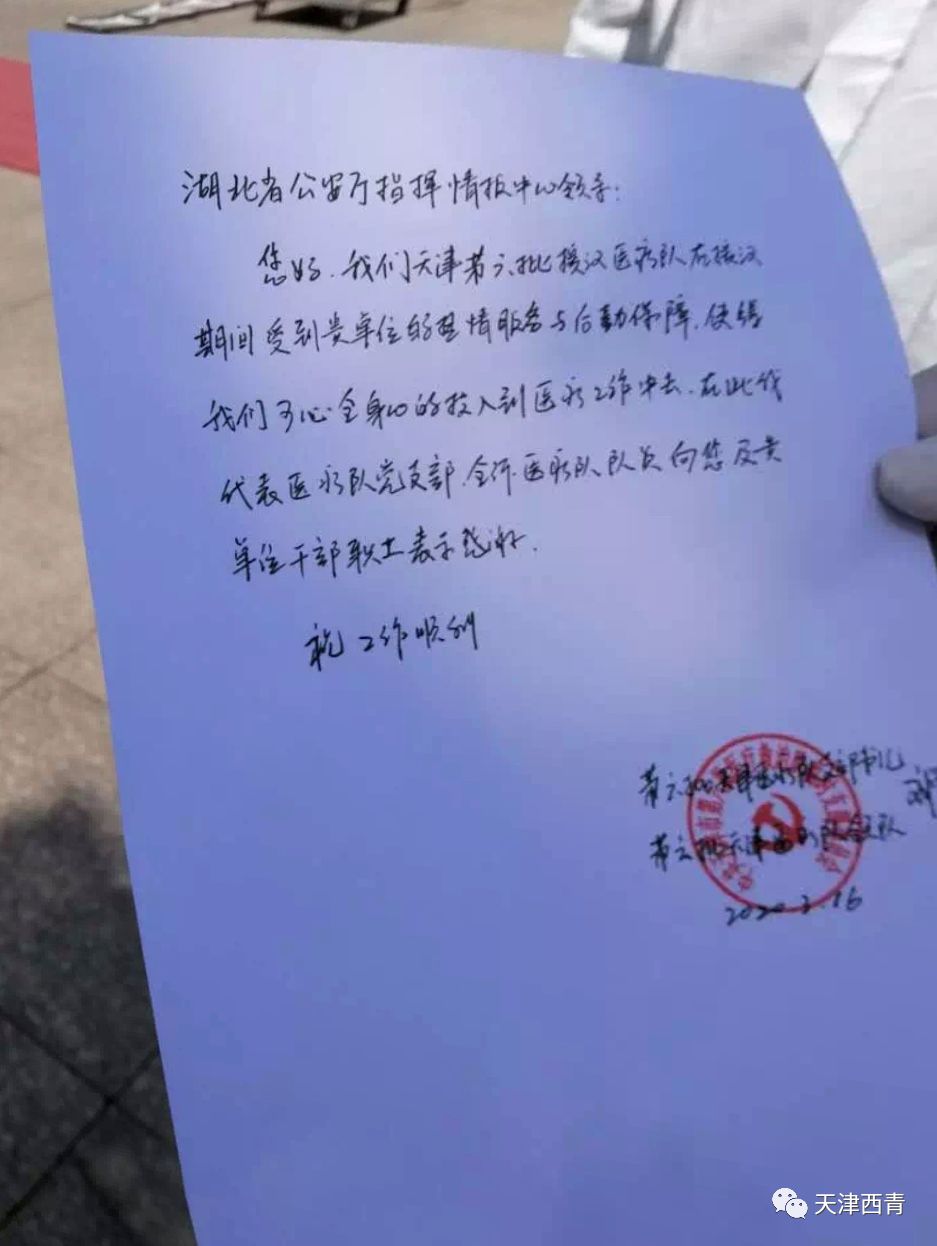 湖北省公安厅指挥情报中心领导：
您好，我们天津第六批援汉医疗队在援汉
期间受到贵单位的热情服务与后勤保障，使得
我们可心全身心的投入到医疗工作中去，在此我
代表医疗队党支部，全体医疗队队员向您及贵
单位干部职工表示感谢，
祝工作顺利
第六批天津医疗队支部书记
第六批天津医疗队全队
2020.3.16
天津西青